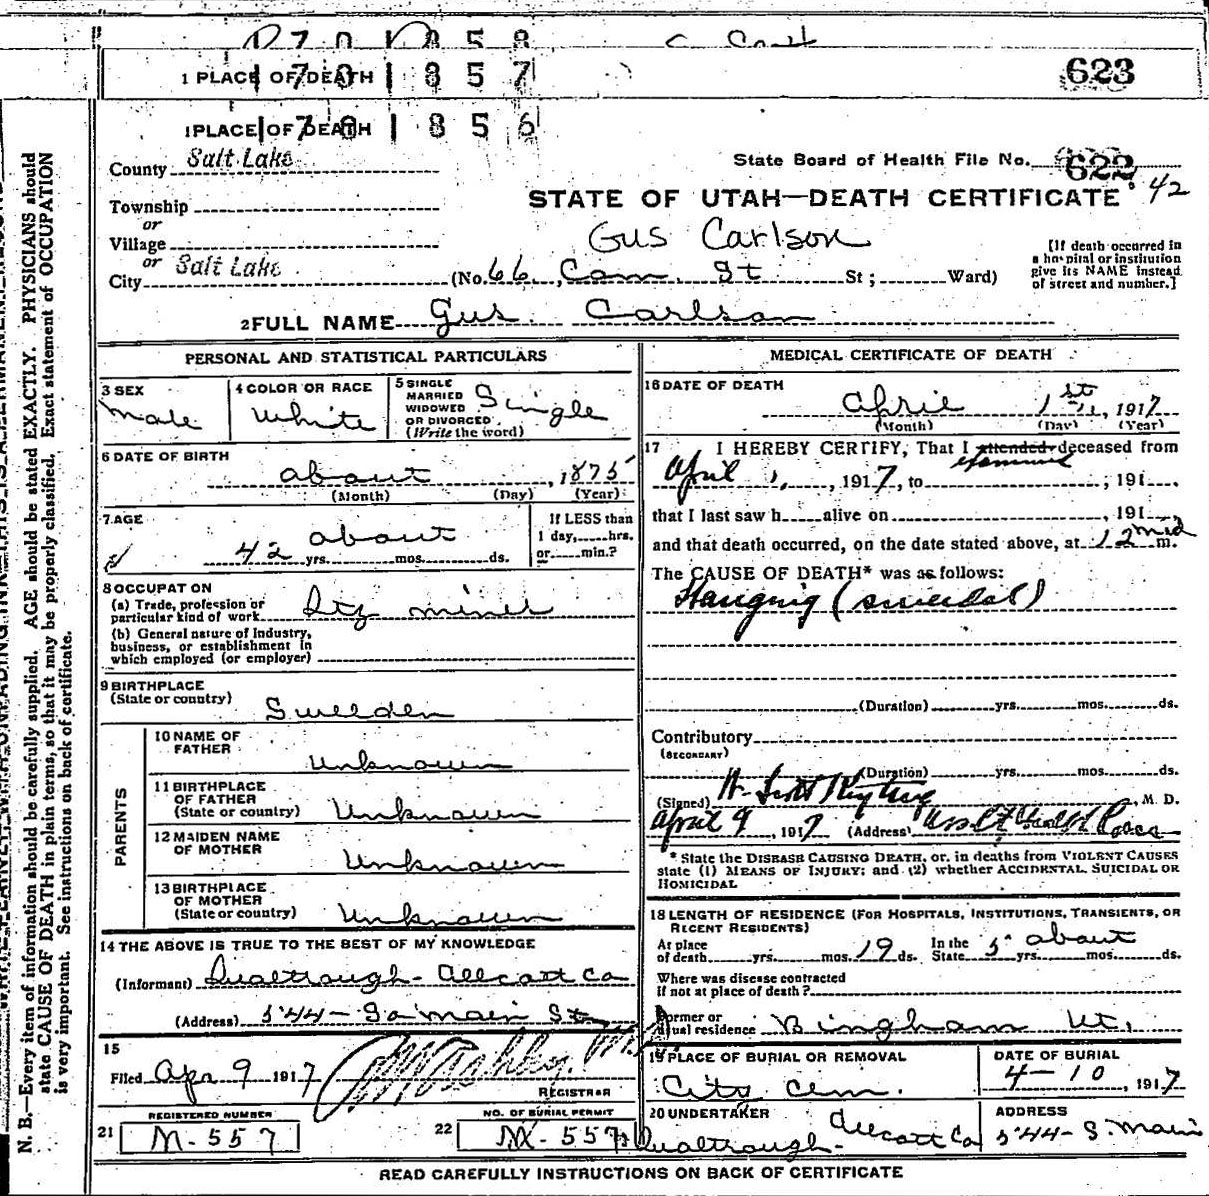 1 PLACE OF DEATH 1 7 0 1 857
623
1 PLACE OF DEATH 856
County Salt Lake
State Board of Health File No. 622
STATE OF UTAH—DEATH CERTIFICATE 42
Township
or
Village
Gus Carlson
or
City Salt Lake (No. 66, Com. St St; Ward)
[If death occurred in
a hospital or institution
give its NAME instead
of street and number.]
2 FULL NAME Gus Carlson
PERSONAL AND STATISTICAL PARTICULARS
3 SEX
male
4 COLOR OR RACE
White
5 SINGLE
MARRIED
WIDOWED
OR DIVORCED
(Write the word)
Single
6 DATE OF BIRTH
about, 1875
(Month) (Day) (Year)
7 AGE
about
42 yrs. mos. ds.
If LESS than
1 day, hrs.
or min.?
8 OCCUPATION
(a) Trade, profession or
particular kind of work miner
(b) General nature of Industry,
business, or establishment in
which employed (or employer)
9 BIRTHPLACE
(State or country)
Sweeden
PARENTS
10 NAME OF
FATHER
Unknown
11 BIRTHPLACE
OF FATHER
(State or country)
Unknown
12 MAIDEN NAME
OF MOTHER
Unknown
13 BIRTHPLACE
OF MOTHER
(State or country)
Unknown
14 THE ABOVE IS TRUE TO THE BEST OF MY KNOWLEDGE
(Informant) Allcott Co
(Address) 544 - So main St
15
Filed Apr 9 1917
REGISTRAR
REGISTERED NUMBER
21 M-557
NO. OF BURIAL PERMIT
22 M-557
MEDICAL CERTIFICATE OF DEATH
16 DATE OF DEATH
April 1st, 1917
(Month) (Day) (Year)
17 I HEREBY CERTIFY, That I attended deceased from
examined
April 1, 1917, to ; 191
that I last saw h alive on , 191
and that death occurred, on the date stated above, at 12 mid m.
The CAUSE OF DEATH* was as follows:
Hanging (suicidal)
(Duration) yrs. mos. ds.
Contributory
(SECONDARY)
(Duration) yrs. mos. ds.
(Signed) , M. D.
April 9, 1917 (Address)
* State the DISEASE CAUSING DEATH, or, in deaths from VIOLENT CAUSES
state (1) MEANS OF INJURY; and (2) whether ACCIDENTAL, SUICIDAL OR
HOMICIDAL
18 LENGTH OF RESIDENCE (FOR HOSPITALS, INSTITUTIONS, TRANSIENTS, OR
RECENT RESIDENTS)
At place
of death yrs. mos. 19 ds.
In the
State 5 yrs. about mos. ds.
Where was disease contracted
If not at place of death?
Former or
usual residence Bingham Ut.
19 PLACE OF BURIAL OR REMOVAL
City Cem.
DATE OF BURIAL
4-10, 1917
20 UNDERTAKER
Allcott Co
ADDRESS
544- S. Main
READ CAREFULLY INSTRUCTIONS ON BACK OF CERTIFICATE
N. B.—Every item of information should be carefully supplied. AGE should be stated EXACTLY. PHYSICIANS should
state CAUSE OF DEATH in plain terms, so that it may be properly classified. Exact statement of OCCUPATION
is very important. See instructions on back of certificate.